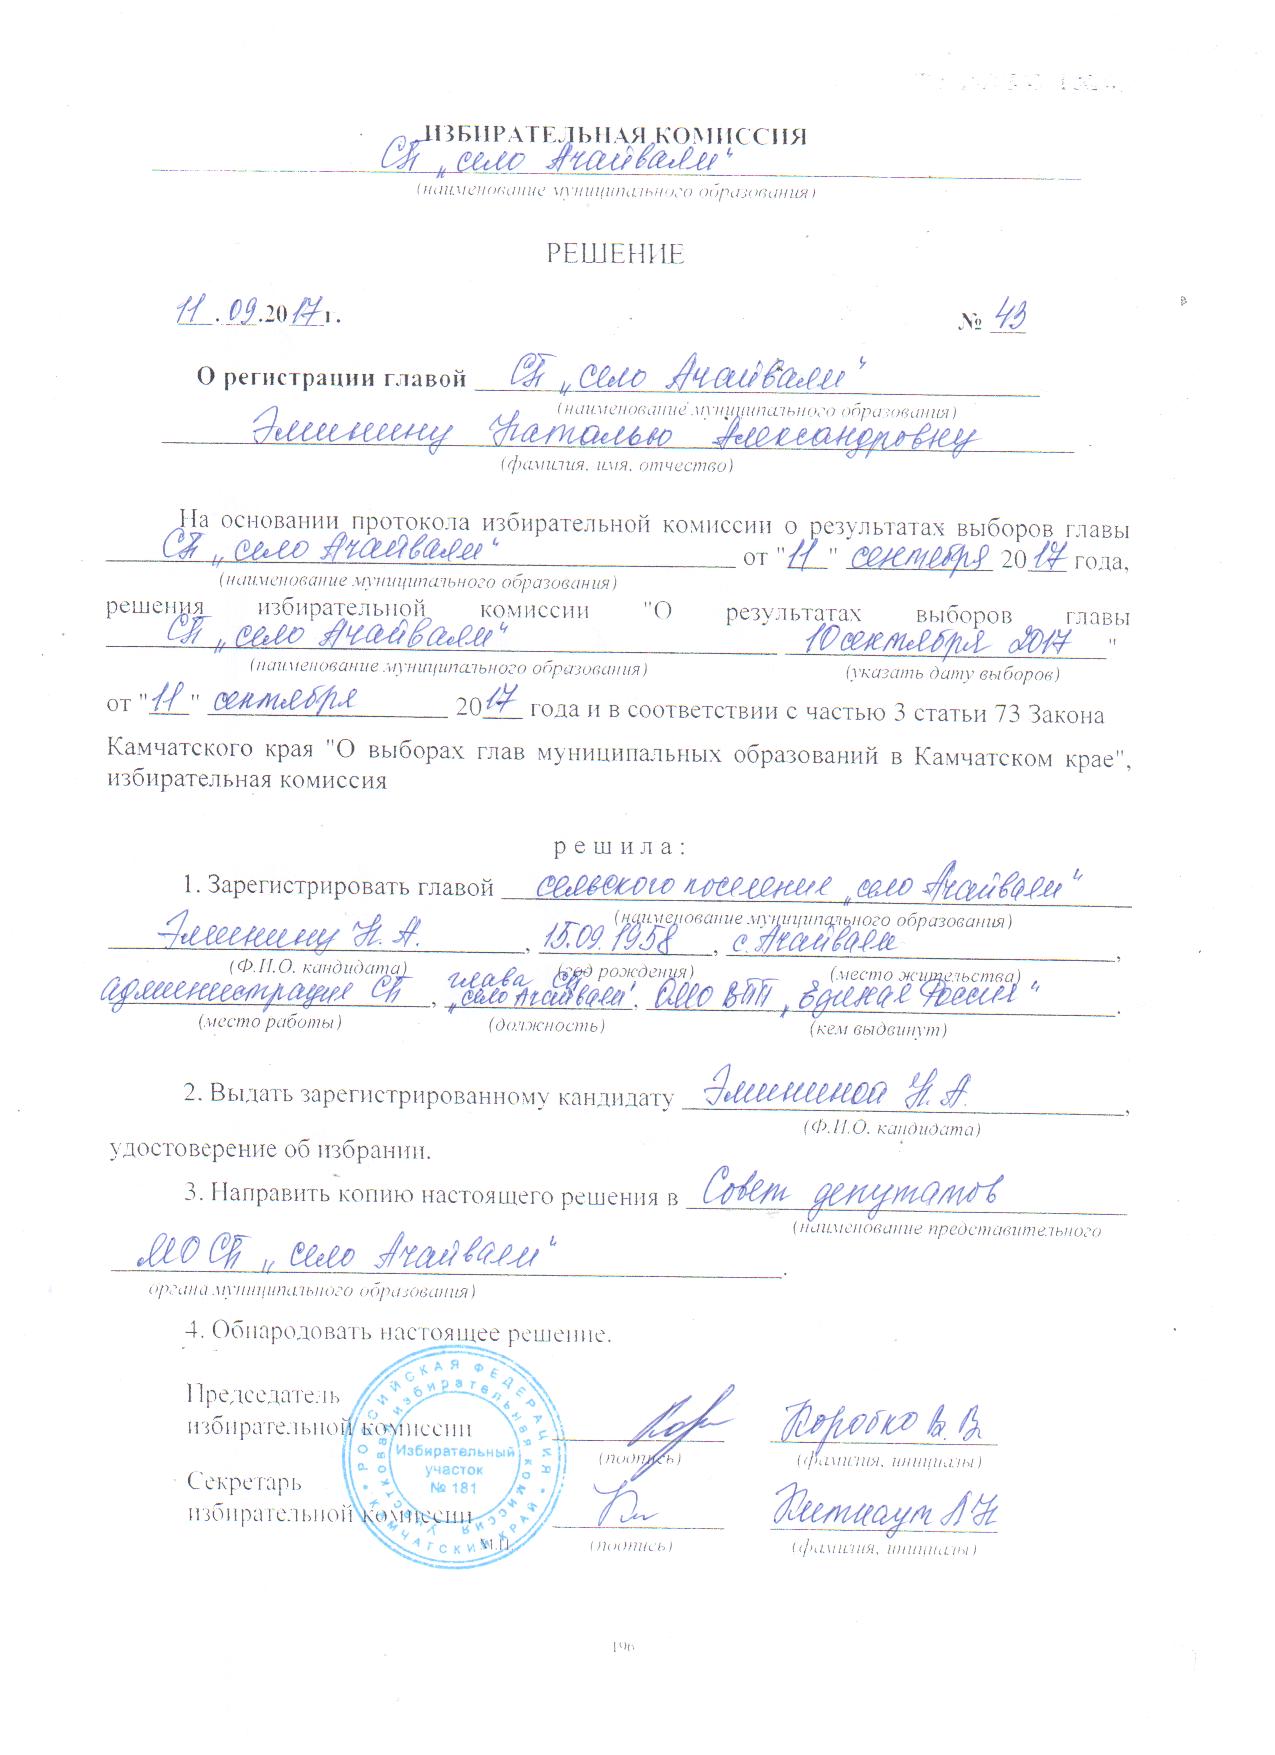 ИЗБИРАТЕЛЬНАЯ КОМИССИЯ
СП „село Ачайваям“
(наименование муниципального образования)
РЕШЕНИЕ
11.09.2017г. № 43
О регистрации главой СП „село Ачайваям“
(наименование муниципального образования)
Эминину Наталью Александровну
(фамилия, имя, отчество)
На основании протокола избирательной комиссии о результатах выборов главы
СП „село Ачайваям“ от "11" сентября 2017 года,
(наименование муниципального образования)
решения избирательной комиссии "О результатах выборов главы
СП „село Ачайваям“ 10 сентября 2017"
(наименование муниципального образования) (указать дату выборов)
от "11" сентября 2017 года и в соответствии с частью 3 статьи 73 Закона
Камчатского края "О выборах глав муниципальных образований в Камчатском крае",
избирательная комиссия
р е ш и л а :
1. Зарегистрировать главой сельского поселения „село Ачайваям“
(наименование муниципального образования)
Эминину Н. А., 15.09.1958, с. Ачайваям,
(Ф.И.О. кандидата) (год рождения) (место жительства)
администрация СП, глава СП „село Ачайваям“, ОМО ВПП „Единая Россия“.
(место работы) (должность) (кем выдвинут)
2. Выдать зарегистрированному кандидату Эмининой Н. А.,
(Ф.И.О. кандидата)
удостоверение об избрании.
3. Направить копию настоящего решения в Совет депутатов
(наименование представительного
МО СП „село Ачайваям“.
органа муниципального образования)
4. Обнародовать настоящее решение.
Председатель
избирательной комиссии Коробко В. В.
(подпись) (фамилия, инициалы)
Секретарь
избирательной комиссии
М.П. (подпись) (фамилия, инициалы)
РОССИЙСКАЯ ФЕДЕРАЦИЯ • КАМЧАТСКИЙ КРАЙ •
Участковая избирательная комиссия
Избирательный
участок
№ 181
196